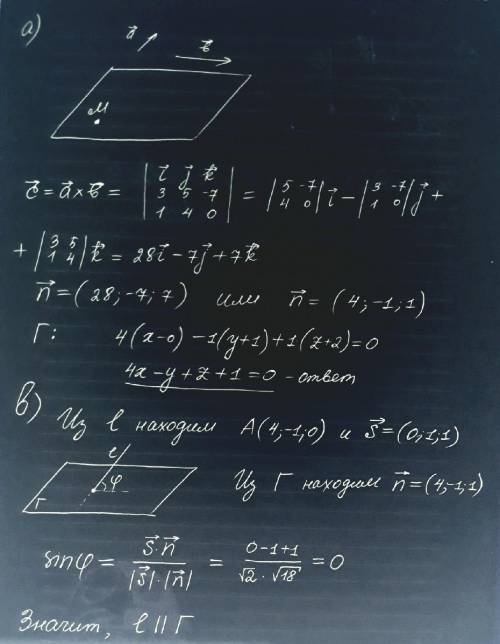 а)
a⃗ b⃗
M
c⃗ = a⃗ × b⃗ = | i⃗ j⃗ k⃗ ; 3 5 -7 ; 1 4 0 | = | 5 -7 ; 4 0 | i⃗ - | 3 -7 ; 1 0 | j⃗ +
+ | 3 5 ; 1 4 | k⃗ = 28i⃗ - 7j⃗ + 7k⃗
n⃗ = (28; -7; 7) или n⃗ = (4; -1; 1)
Г: 4(x-0) - 1(y+1) + 1(z+2) = 0
4x - y + z + 1 = 0 - ответ
в) Из l находим A(4; -1; 0) и s⃗ = (0; 1; 1)
l
φ
Г
Из Г находим n⃗ = (4; -1; 1)
sinφ = s⃗·n⃗ / |s⃗|·|n⃗| = 0-1+1 / √2·√18 = 0
Значит, l || Г